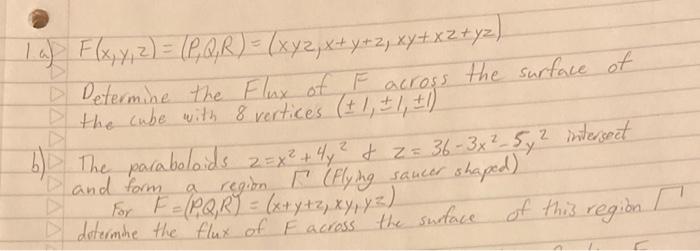 1.a) F(x,y,z) = (P,Q,R) = (xyz, x+y+z, xy+xz+yz)
Determine the Flux of F across the surface of
the cube with 8 vertices (±1,±1,±1)
b) The paraboloids z=x²+4y² & z=36-3x²-5y² intersect
and form a region Γ (Flying saucer shaped)
For F=(P,Q,R) = (x+y+z, xy, yz)
determine the flux of F across the surface of this region Γ